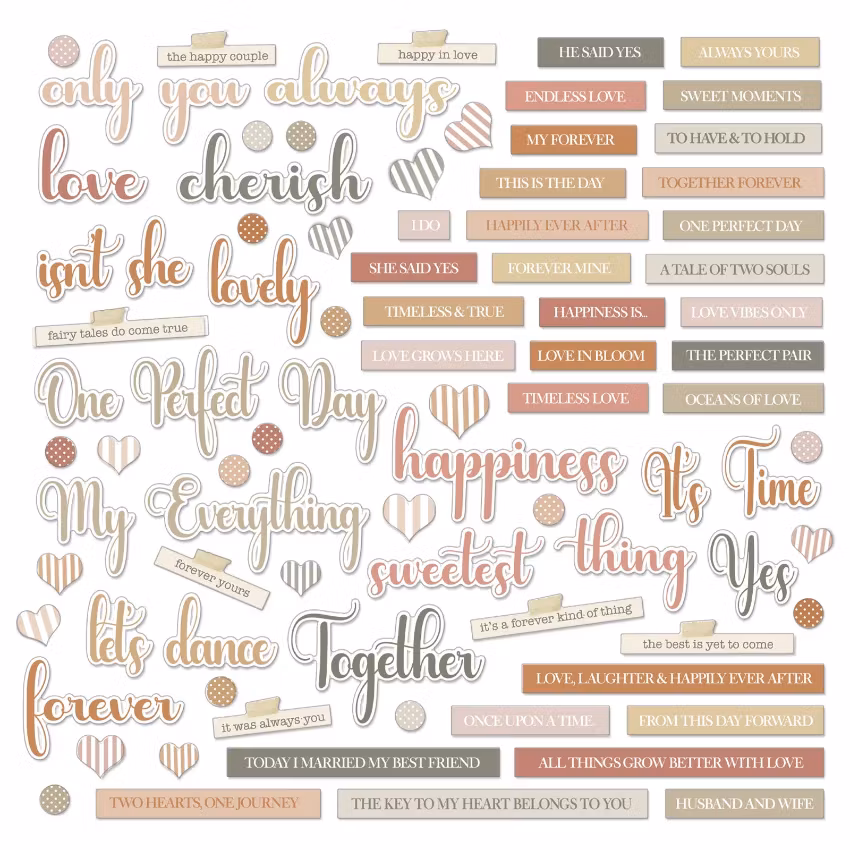 the happy couple
happy in love
HE SAID YES
ALWAYS YOURS
only you always
ENDLESS LOVE
SWEET MOMENTS
MY FOREVER
TO HAVE & TO HOLD
love cherish
THIS IS THE DAY
TOGETHER FOREVER
I DO
HAPPILY EVER AFTER
ONE PERFECT DAY
isn't she lovely
SHE SAID YES
FOREVER MINE
A TALE OF TWO SOULS
TIMELESS & TRUE
HAPPINESS IS...
LOVE VIBES ONLY
fairy tales do come true
LOVE GROWS HERE
LOVE IN BLOOM
THE PERFECT PAIR
One Perfect Day
TIMELESS LOVE
OCEANS OF LOVE
happiness
It's Time
My Everything
sweetest thing
Yes
forever yours
let's dance
Together
it's a forever kind of thing
the best is yet to come
forever
LOVE, LAUGHTER & HAPPILY EVER AFTER
it was always you
ONCE UPON A TIME
FROM THIS DAY FORWARD
TODAY I MARRIED MY BEST FRIEND
ALL THINGS GROW BETTER WITH LOVE
TWO HEARTS, ONE JOURNEY
THE KEY TO MY HEART BELONGS TO YOU
HUSBAND AND WIFE